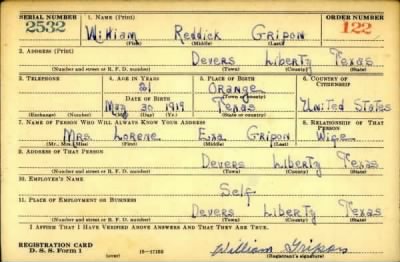 SERIAL NUMBER 1. NAME (Print) ORDER NUMBER
2532 William Reddick Gripon 122
(First) (Middle) (Last)
2. ADDRESS (Print)
Devers Liberty Texas
(Number and street or R. F. D. number) (Town) (County) (State)
3. TELEPHONE 4. AGE IN YEARS 5. PLACE OF BIRTH 6. COUNTRY OF CITIZENSHIP
21 Orange
DATE OF BIRTH (Town or County)
May 30 1919 Texas United States
(Exchange) (Number) (Mo.) (Day) (Yr.) (State or country)
7. NAME OF PERSON WHO WILL ALWAYS KNOW YOUR ADDRESS 8. RELATIONSHIP OF THAT PERSON
Mrs. Lorene Gripon Wife
(Mr., Mrs., Miss) (First) (Middle) (Last)
9. ADDRESS OF THAT PERSON
Devers Liberty Texas
(Number and street or R. F. D. number) (Town) (County) (State)
10. EMPLOYER'S NAME
Self
11. PLACE OF EMPLOYMENT OR BUSINESS
Devers Liberty Texas
(Number and street or R. F. D. number) (Town) (County) (State)
I AFFIRM THAT I HAVE VERIFIED ABOVE ANSWERS AND THAT THEY ARE TRUE.
REGISTRATION CARD
D. S. S. Form 1 (over) William Gripon
(Registrant's signature)